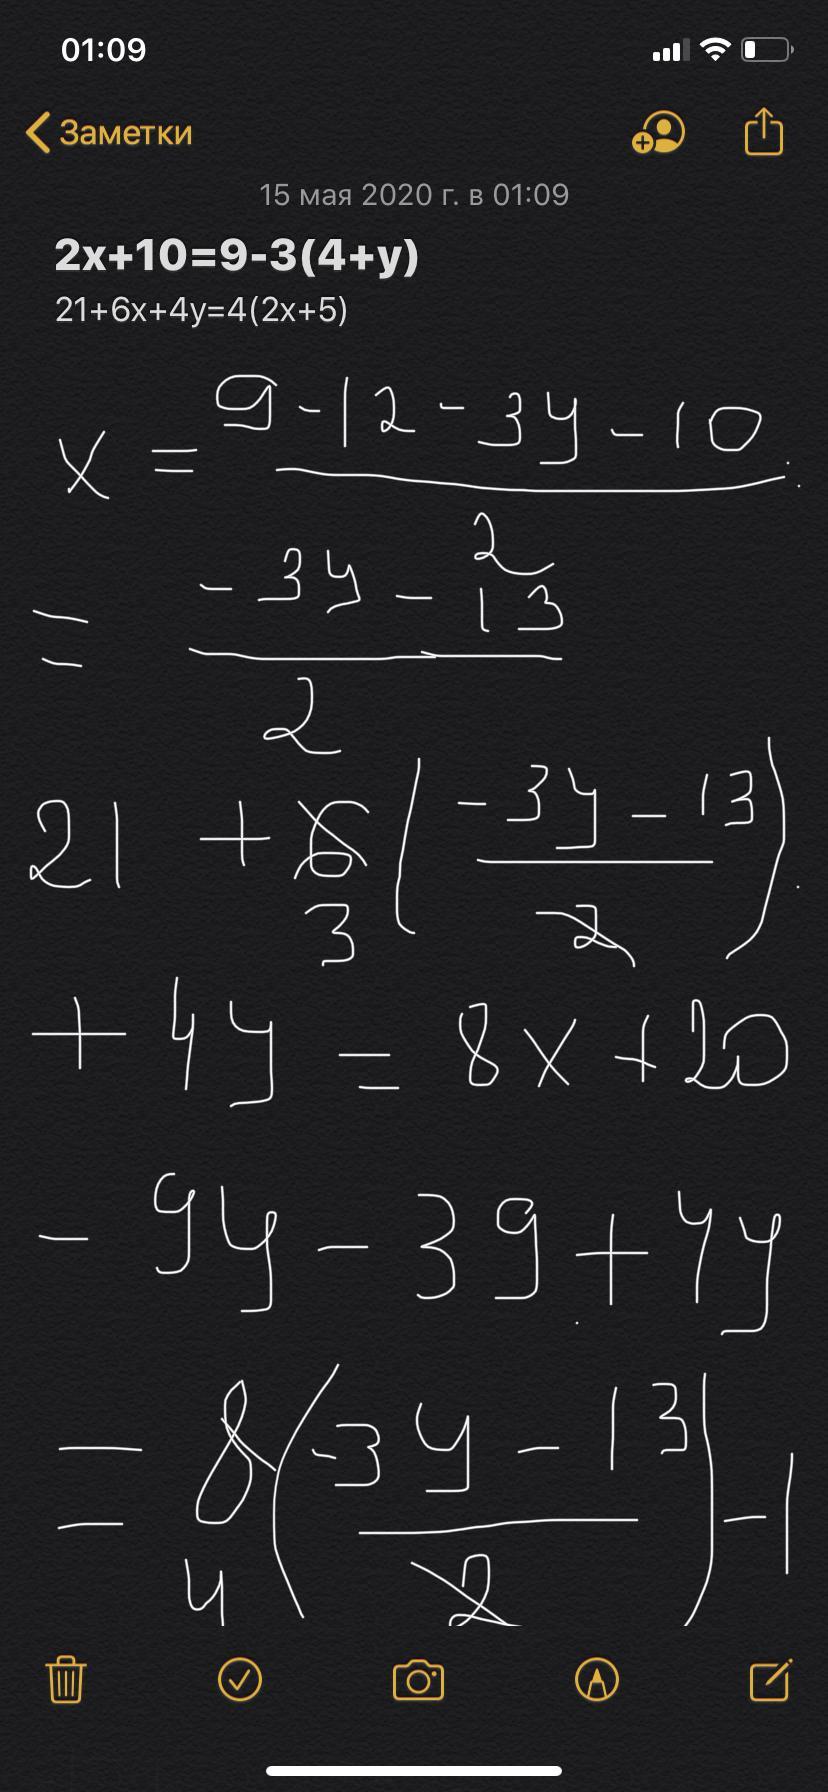 01:09
Заметки
15 мая 2020 г. в 01:09
2x+10=9-3(4+y)
21+6x+4y=4(2x+5)
x = 9-12-3y-10
2
= -3y-13
2
21 + 6 ( -3y-13 )
3 2
+ 4y = 8x+20
- 9y - 39 + 4y
= 8 ( -3y-13 ) -1
4 2